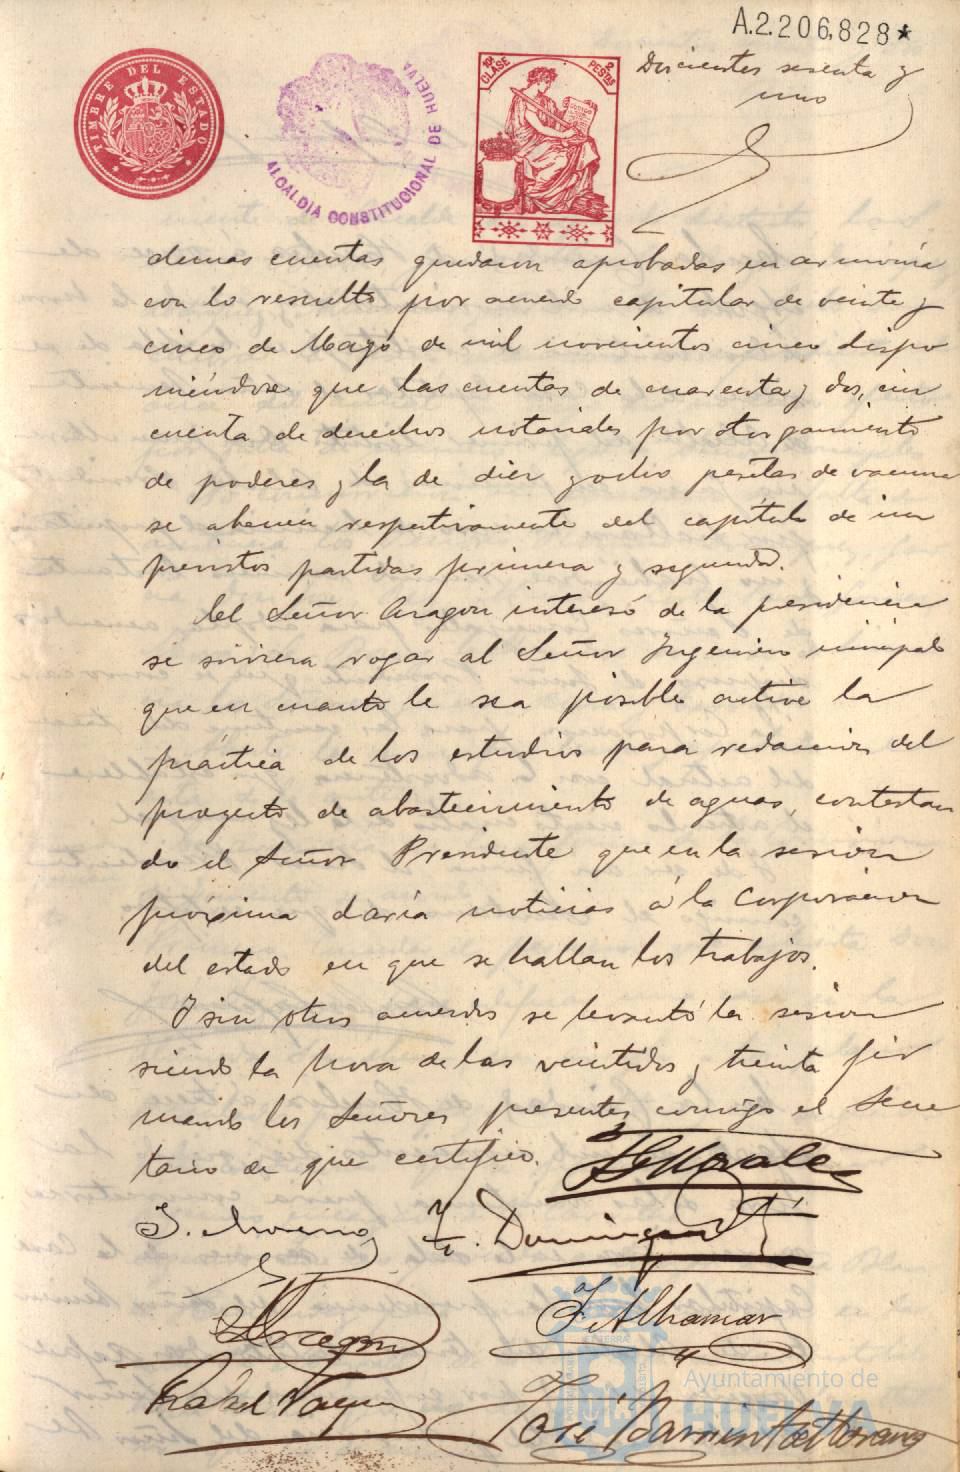 A.2.206,828*
TIMBRE DEL ESTADO
ALCALDIA CONSTITUCIONAL DE HUELVA
10ª CLASE
2 PESETAS
Doscientos sesenta y
uno
demas cuentas quedaron aprobadas en armonia
con lo resuelto por acuerdo capitular de veinte y
cinco de Mayo de mil novecientos cinco dispo
niéndose que las cuentas de cuarenta y dos, cin
cuenta de derechos notariales por otorgamiento
de poderes y la de diez y ocho pesetas de vacuna
se abonen respectivamente del capítulo de im
previstos partidas primera y segunda.
El Señor Aragon interesó de la presidencia
se sirviera rogar al Señor Ingeniero municipal
que en cuanto le sea posible active la
práctica de los estudios para redaccion del
proyecto de abastecimiento de aguas, contestan
do el Señor Presidente que en la sesion
próxima daría noticias á la Corporacion
del estado en que se hallan los trabajos.
Y sin otros acuerdos se levantó la sesion
siendo la hora de las veintidos y treinta fir
mando los Señores presentes conmigo el Secre
tario de que certifico.
J. Moreno
F. Dominguez
Aragon
F. Alhamar
Rafael Vazquez
José Barrientos
Ayuntamiento de
HUELVA